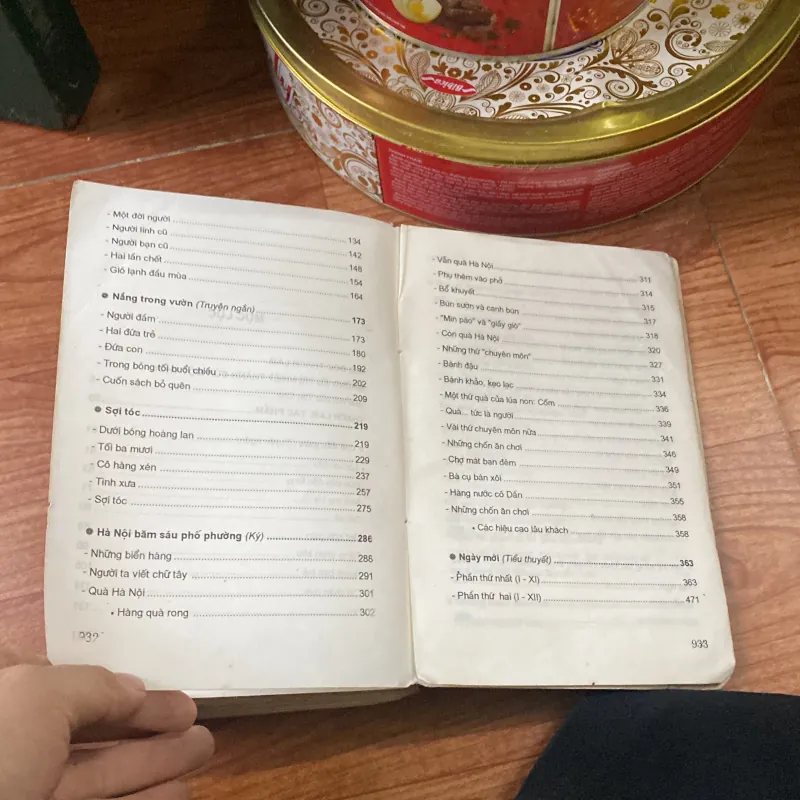 Hibico
- Một đời người ........ 134
- Người lính cũ ........ 142
- Người bạn cũ ........ 148
- Hai lần chết ........ 154
- Gió lạnh đầu mùa ........ 164
● Nắng trong vườn (Truyện ngắn) ........ 173
- Người đầm ........ 173
- Hai đứa trẻ ........ 180
- Đứa con ........ 192
- Trong bóng tối buổi chiều ........ 202
- Cuốn sách bỏ quên ........ 209
● Sợi tóc ........ 219
- Dưới bóng hoàng lan ........ 219
- Tối ba mươi ........ 229
- Cô hàng xén ........ 237
- Tình xưa ........ 257
- Sợi tóc ........ 275
● Hà Nội băm sáu phố phường (Ký) ........ 286
- Những biển hàng ........ 286
- Người ta viết chữ tây ........ 291
- Quà Hà Nội ........ 301
• Hàng quà rong ........ 302
932
- Vẫn quà Hà Nội ........ 311
- Phụ thêm vào phở ........ 314
- Bổ khuyết ........ 315
- Bún sườn và canh bún ........ 317
- "Min páo" và "giầy giò" ........ 318
- Còn quà Hà Nội ........ 320
- Những thứ "chuyên môn" ........ 327
- Bánh đậu ........ 331
- Bánh khảo, kẹo lạc ........ 334
- Một thứ quà của lúa non: Cốm ........ 336
- Quà... tức là người ........ 339
- Vài thứ chuyên môn nữa ........ 341
- Những chốn ăn chơi ........ 346
- Chợ mát ban đêm ........ 349
- Bà cụ bán xôi ........ 351
- Hàng nước cô Dần ........ 355
- Những chốn ăn chơi ........ 358
• Các hiệu cao lâu khách ........ 358
● Ngày mới (Tiểu thuyết) ........ 363
- Phần thứ nhất (I - XI) ........ 363
- Phần thứ hai (I - XII) ........ 471
933